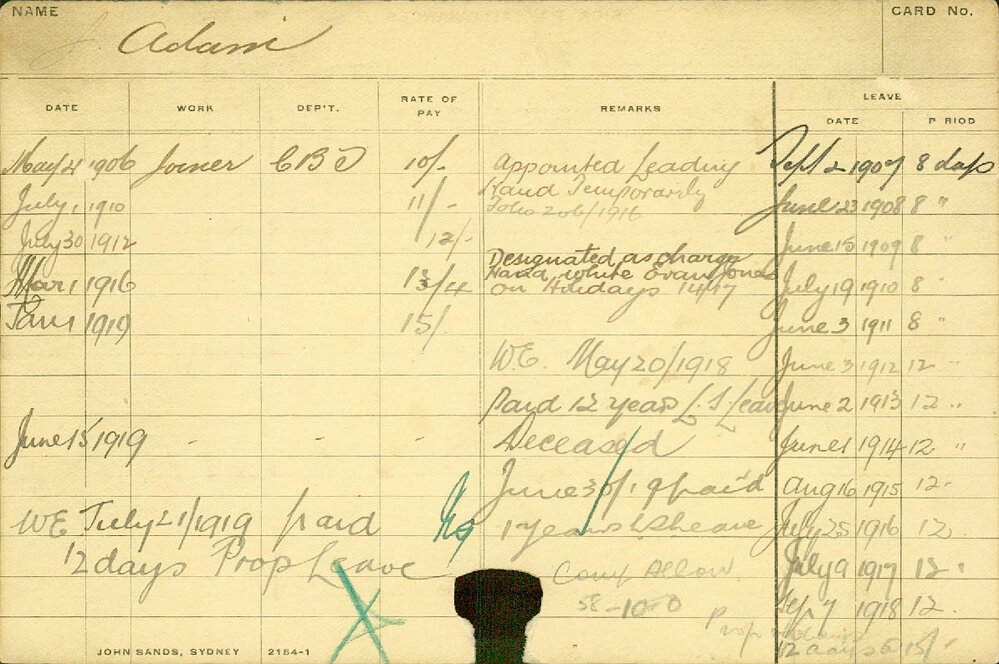 NAME CARD No.
J. Adam
LEAVE
DATE WORK DEP'T. RATE OF PAY REMARKS DATE P RIOD
May 21 1906 Joiner CBD 10/- Appointed Leading Sept 2 1907 8 days
Hand Temporarily
July 1 1910 11/- Folio 206/1916 June 23 1908 8 "
July 30 1912 12/- June 15 1909 8 "
Designated as charge
Mar 1 1916 13/4 Hand while
on Holidays 14/17 July 19 1910 8 "
Jan 1 1919 15/ June 3 1911 8 "
W.E. May 20/1918 June 3 1912 12 "
Paid 12 years L.S. Leave June 2 1913 12 "
June 15 1919 - - - Deceased June 1 1914 12 "
June 30/19 paid Aug 16 1915 12 "
WE July 21/1919 paid 1 years Leave July 25 1916 12 "
12 days Prop Leave Comp Allow July 9 1917 12 "
58-10-0 Sep 7 1918 12 "
Prop
12 days 15/
JOHN SANDS, SYDNEY 2154-1